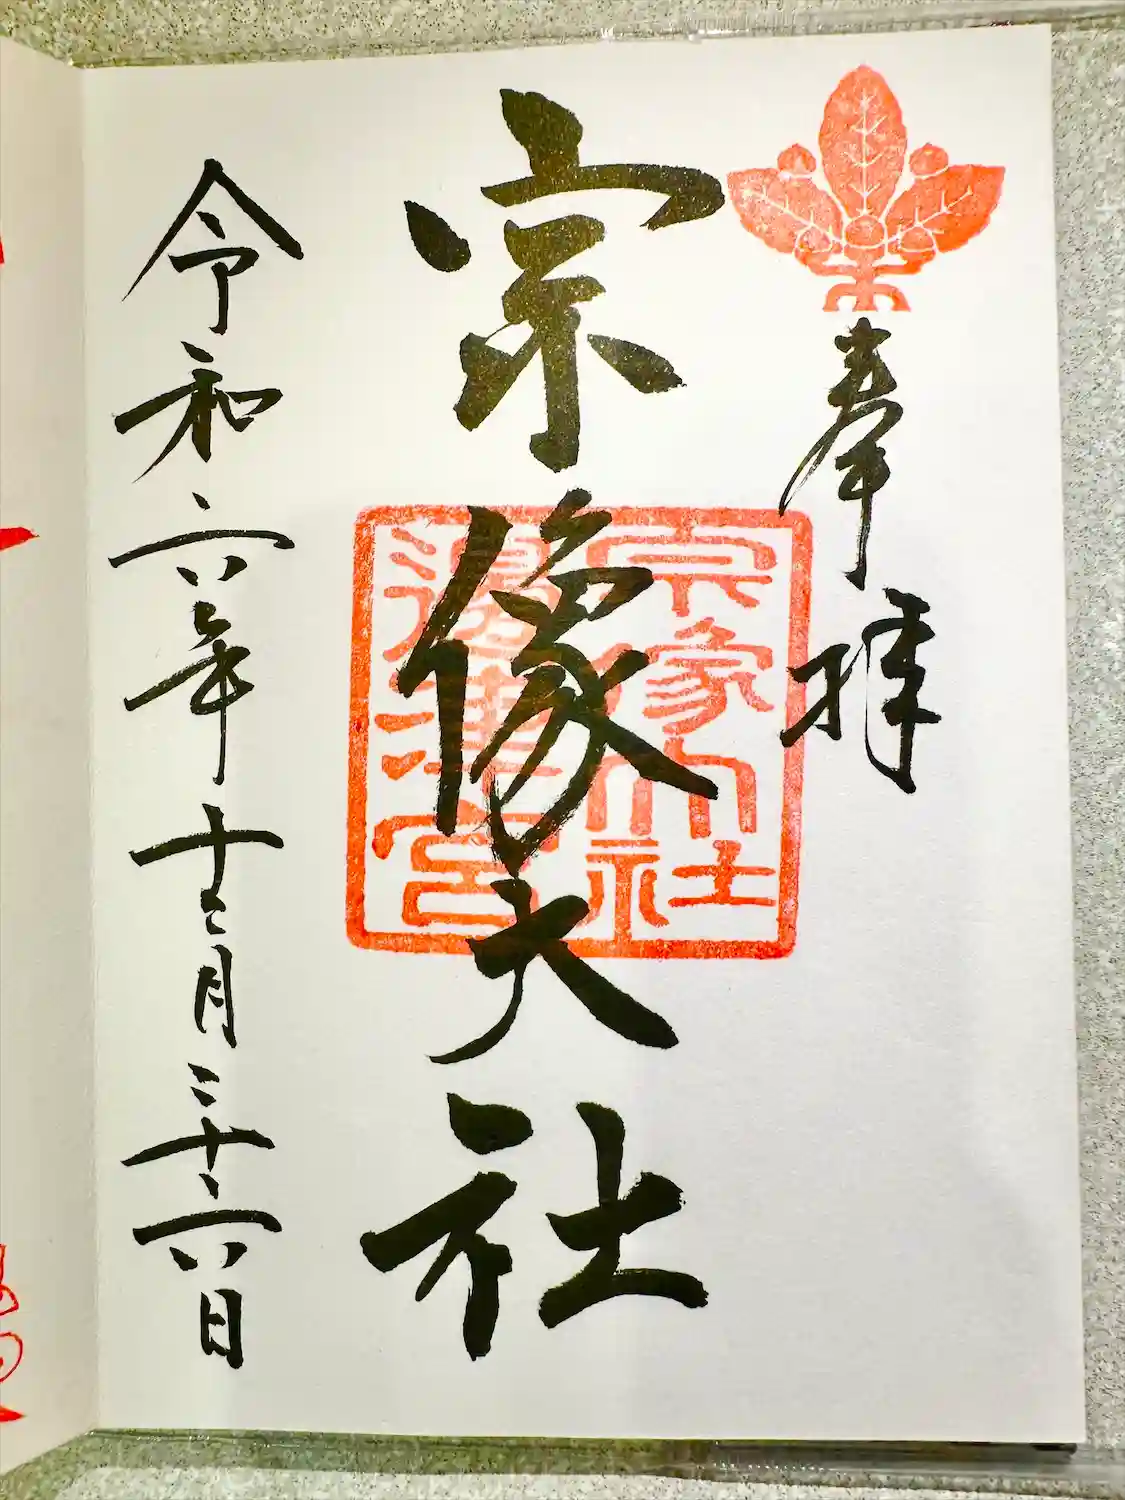 奉拝
宗像大社
宗像大社
邊津宮
令和六年十二月二十六日